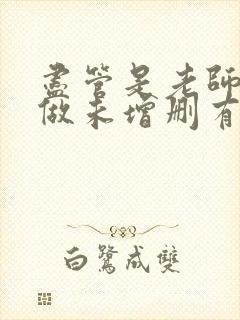 盡管是老師
做未增刪有
白鷺成雙